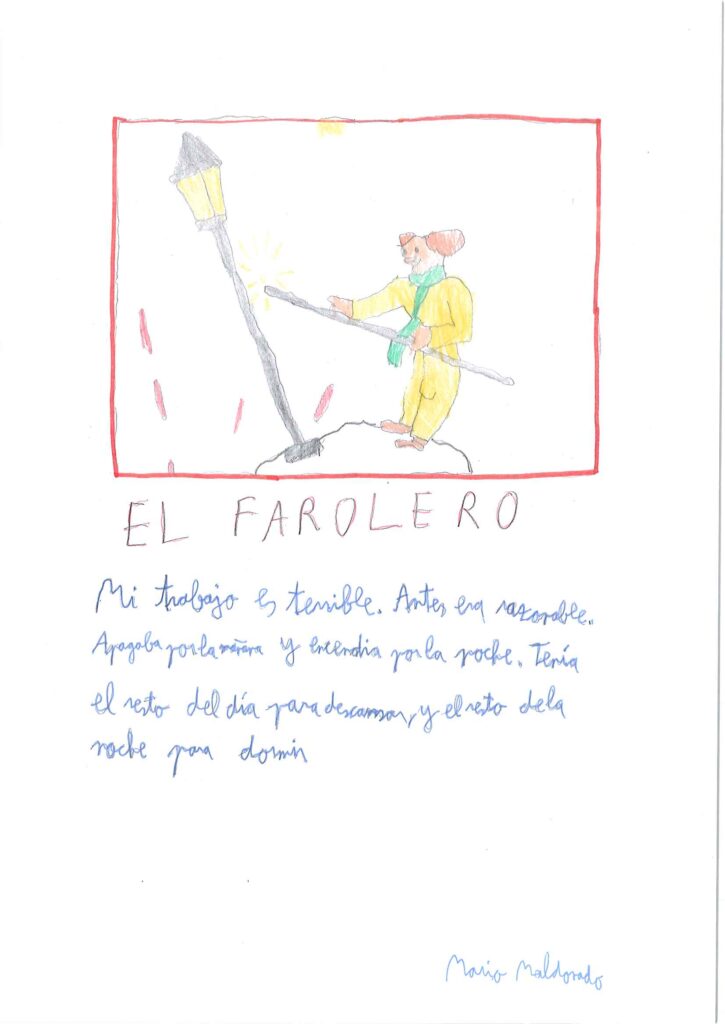 EL FAROLERO
Mi trabajo es terrible. Antes era razonable.
Apagaba por la mañana y encendia por la noche. Tenía
el resto del día para descansar, y el resto de la
noche para dormir
Mario Maldorado